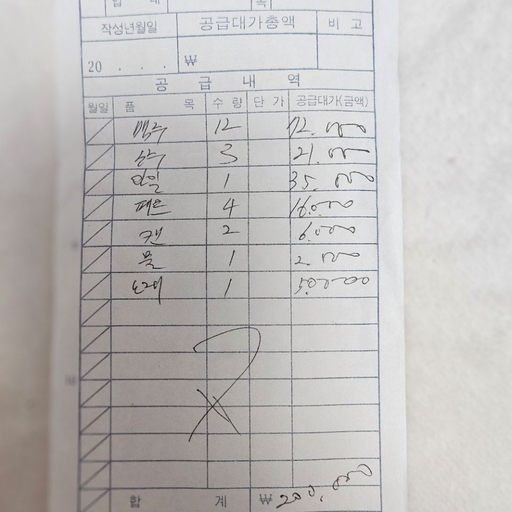 작성년월일 공급대가총액 비 고
20 . . . ₩
공 급 내 역
월일 품 목 수 량 단 가 공급대가(금액)
맥주 12 72.000
소주 3 21.000
과일 1 35.000
페트 4 16.000
캔 2 6.000
물 1 2.000
노래 1 50.000
합 계 ₩ 200,000